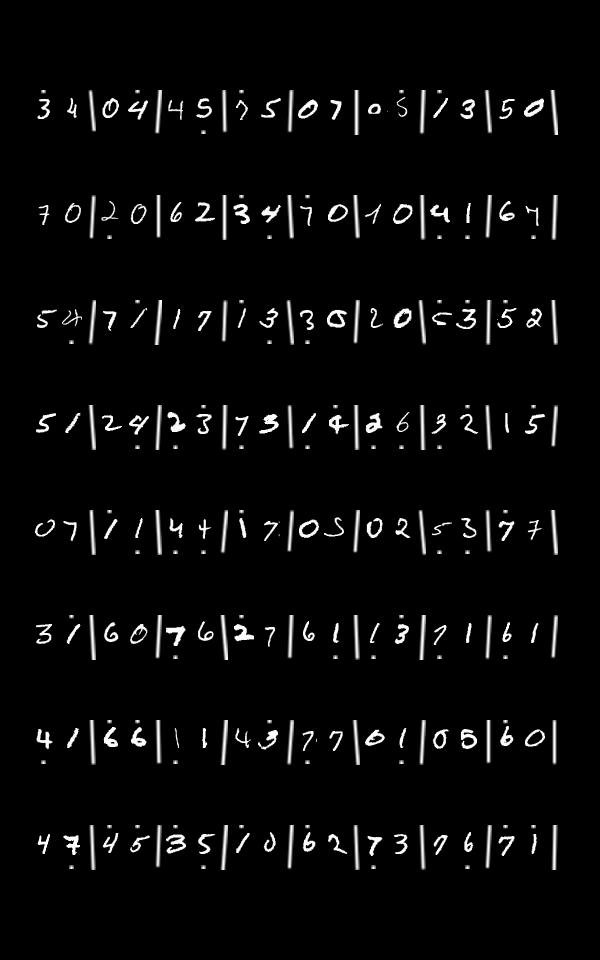 3 4 | 0 4 | 4 5 | 7 5 | 0 7 | 0 5 | 1 3 | 5 0 |
7 0 | 2 0 | 6 2 | 3 4 | 7 0 | 1 0 | 4 1 | 6 7 |
5 4 | 7 1 | 1 7 | 1 3 | 3 5 | 2 0 | 5 3 | 5 2 |
5 1 | 2 4 | 2 3 | 7 3 | 1 4 | 2 6 | 3 2 | 1 5 |
0 7 | 1 1 | 4 4 | 1 7 | 0 5 | 0 2 | 5 3 | 7 7 |
3 1 | 6 0 | 7 6 | 2 7 | 6 1 | 1 3 | 7 1 | 6 1 |
4 1 | 6 6 | 1 1 | 4 3 | 7 7 | 0 1 | 0 5 | 6 0 |
4 7 | 4 5 | 3 5 | 1 0 | 6 2 | 7 3 | 7 6 | 7 1 |